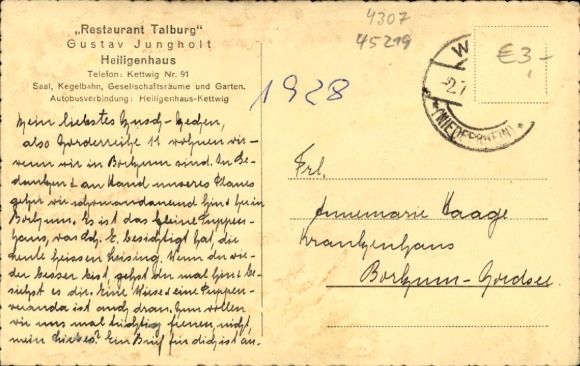 „Restaurant Talburg"
Gustav Jungholt
Heiligenhaus
Telefon: Kettwig Nr. 91
Saal, Kegelbahn, Gesellschaftsräume und Garten.
Autobusverbindung: Heiligenhaus-Kettwig
4307
45219
1928
€3,-
W
-2.7
*(NIEDERRHEIN)*
Mein liebstes
also Vorderreihe 11 wohnen wir-
wenn wir in Borkum sind. In Ge-
danken & an Hand unseres Planes
gehen wir schon
Borkum. Es ist das kleine Puppen-
haus, was besichtigt hat, die
heute heissen Wenn du wie-
der besser bist, gehst du mal hin & be-
siehst es dir. Eine Wiese & eine Puppen-
veranda ist auch dran. Dann wollen
wir uns mal tüchtig freuen, nicht,
mein Liebes? Ein Brief für dich ist an-
Frl.
Annemarie Haage
Krankenhaus
Borkum-Nordsee.